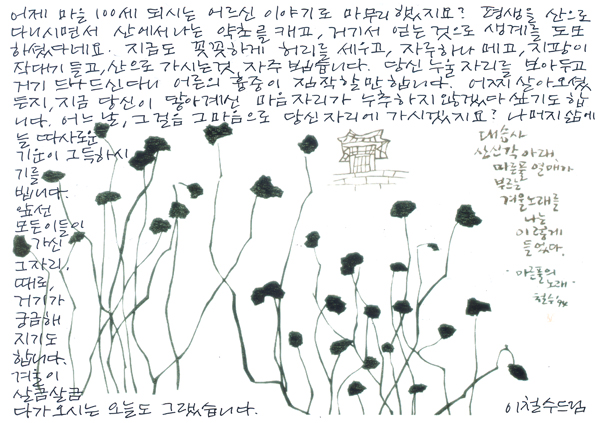 어제 마을 100세 되시는 어르신 이야기로 마무리했지요? 평생을 산으로
다니시면서 산에서나는 약초를 캐고, 거기서 얻는것으로 생계를 도모
하셨다네요. 지금도 꼿꼿하게 허리를 세우고, 자루하나 메고, 지팡이
작대기 들고, 산으로 가시는것, 자주 뵙습니다. 당신 누울 자리를 보아두고
거기 드나드신다니 어른의 흉중이 짐작할만 합니다. 어찌 살아오셨
든지, 지금 당신이 맞아계신 마음자리가 누추하지 않겠다 싶기도 합
니다. 어느날, 그걸음 그마음으로 당신자리에 가시겠지요? 나머지 삶에
늘 따사로운
기운이 그득하시
기를
빕니다.
앞선
모든이들이
가신
그자리.
때로,
거기가
궁금해
지기도
합니다.
겨울이
살금살금
다가오시는 오늘도 그랬습니다.
대승사
산신각 아래,
마른풀 열매가
부르는
겨울노래를
나는
이렇게
들었다.
·마른풀의
노래·
철수
이철수드림